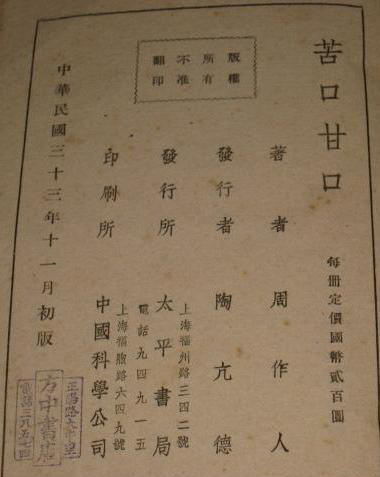 苦口甘口
每冊定價國幣貳百圓
版權
所有
不准
翻印
著者 周作人
發行者 陶亢德
發行所 太平書局
上海福州路三四二號
電話九四九一五
印刷所 中國科學公司
上海福煦路六四九號
中華民國三十三年十一月初版
方中書店
電話三九五七四